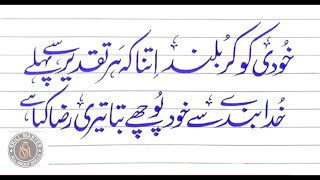 خُودی کو کر بلند اِتنا کہ ہر تقدیر سے پہلے
خُدا بندے سے خود پُوچھے بتا تیری رضا کیا ہے